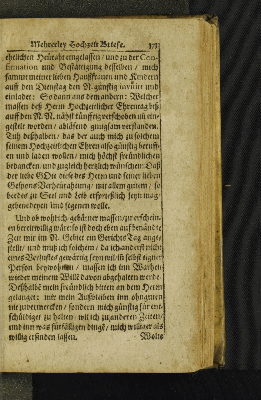 Mehrerley Hochzeit Briefe. 373
ehrlichen Heurath eingelassen / und zu der Con-
firmation und Bestättigung desselben / mich
sammt meiner lieben Haußfrauen und Kindern
auff den Dienstag den N. günstig invitirt und
einladet: So dann aus dem andern: Welcher
massen deß Herrn Hochzeitlicher Ehrentag biß
auff den N. N. nächst künfftig verschoben
gestellt worden / ablesend gnugsam verstanden.
Thu deßhalben / das der auch mich zu solchem
seinem Hochzeitlichen Ehren also günstig beruff-
en und laden wollen / mich höchst freundlichen
bedancken, und zugleich hertzlich wünschen: Daß
der liebe GOtt diese des Herrn und seiner lieben
Gespons Verheurathung / mit allem gutem / so
beedes zu Seel und Leib ersprießlich seyn mag /
gebenedeyen und segenen wolle.
Und ob wohl ich gebürner massen zu erschein-
en bereitwillig wäre: so ist doch eben auf benandte
Zeit mir im N. Gebiet ein Gerichts Tag ange-
stellt / und muß ich solchem / da ich anderst nicht
eines Verlustes gewärtig seyn will / in selbst eigner
Person beywohnen / massen ich inn Warheit
wieder meinen Will davon abgehalten werde.
Deßhalbe mein freundlich bitten an dem Herrn
gelanget: mir mein Außbleiben inn ohngutem
nit zuverwercken / sondern mich günstig für ent-
schuldiget zu halten / will ich zu anderen Zeiten /
und inn was fürfälligen dingē / mich williger als
willig erfinden lassen.
Wolte